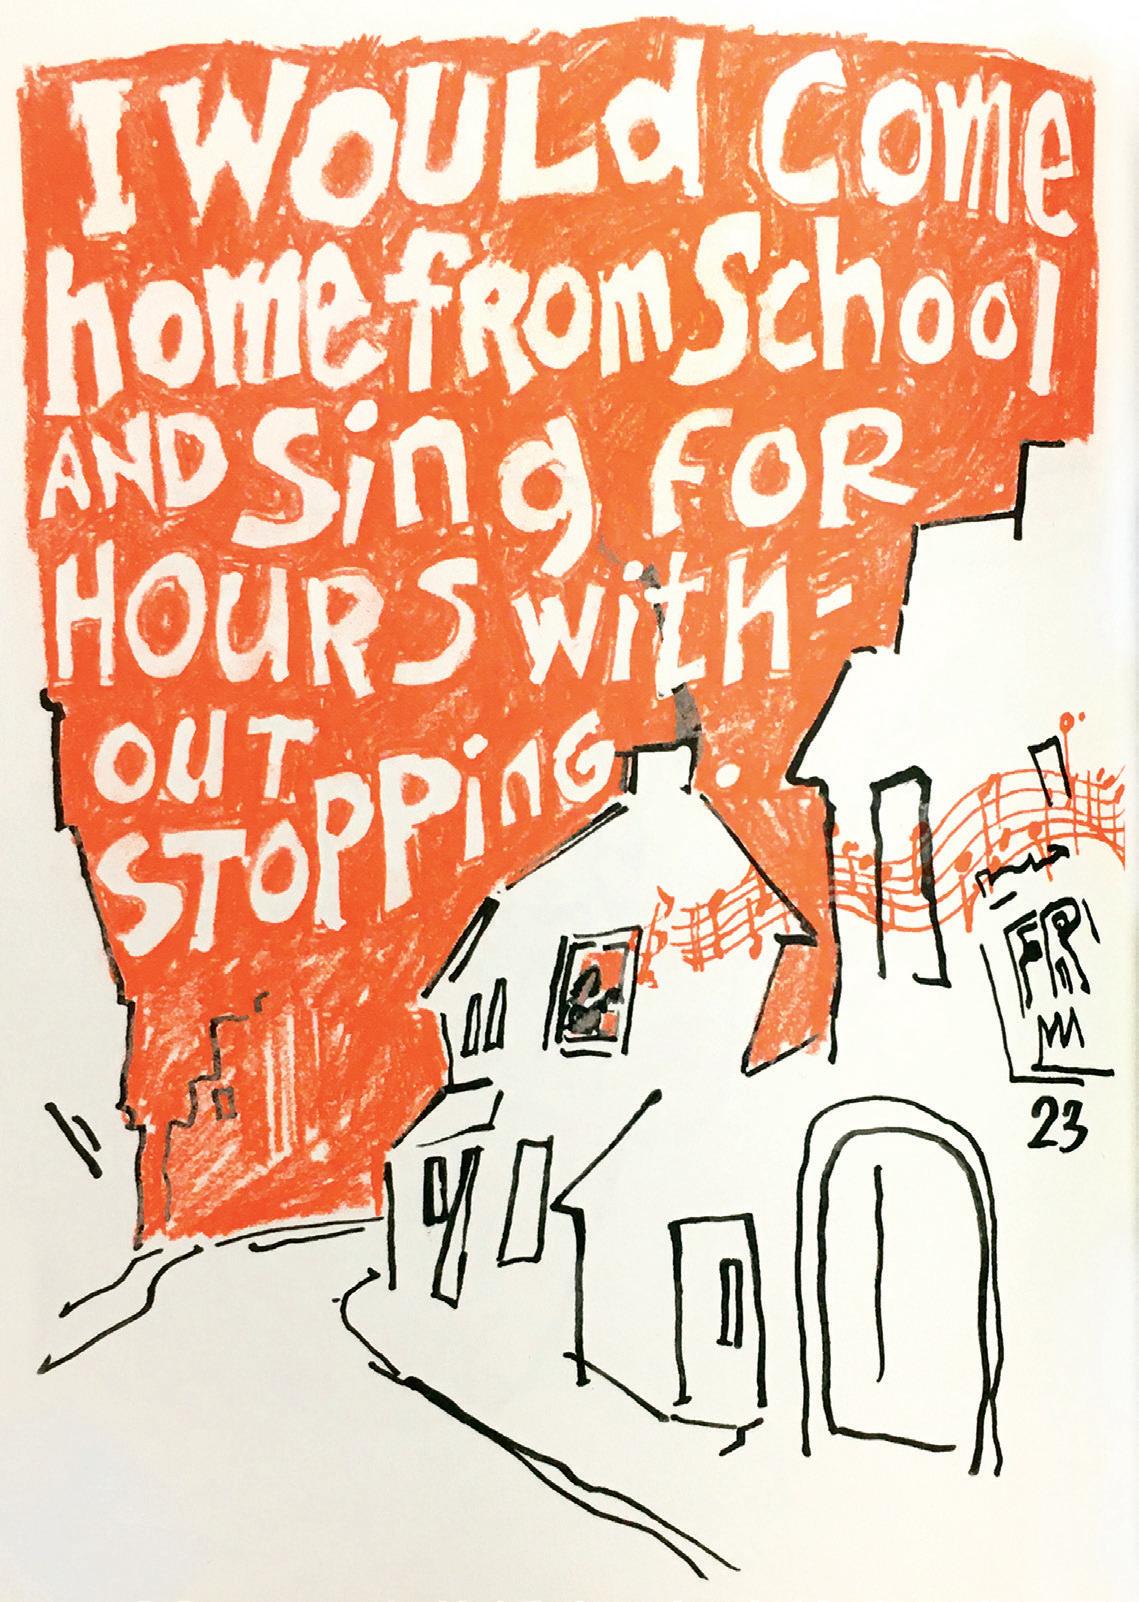 I WOULd Come
home fROm School
AND Sing FOR
HOURS with-
OUT
STOPPinG.
23